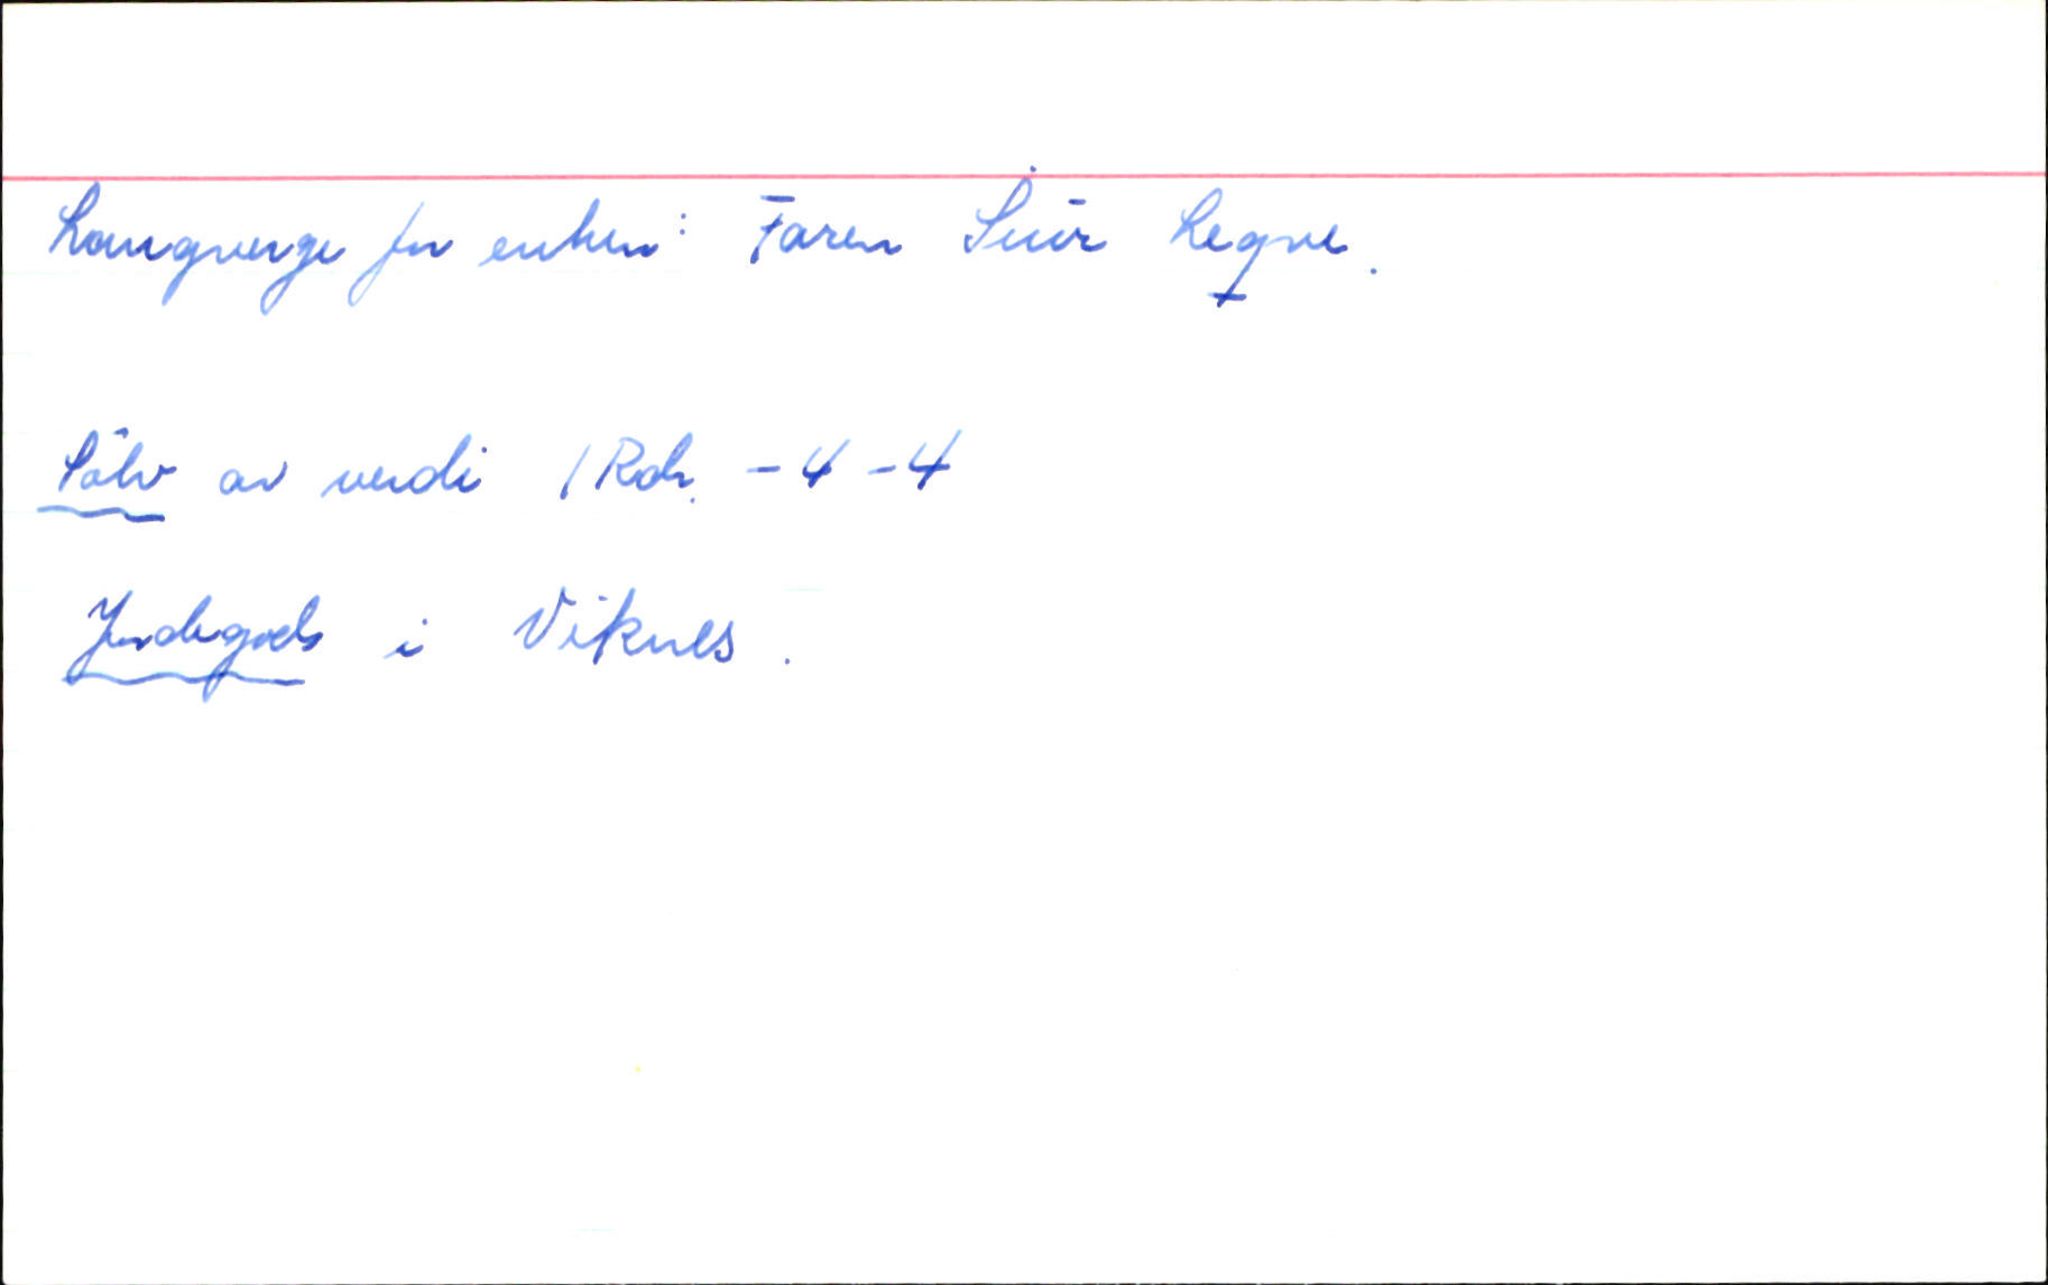 Laugverge for enken: Faren Siur Legve.
Sölv av verdi 1 Rdr. - 4 - 4
Jordegods i Viknes.